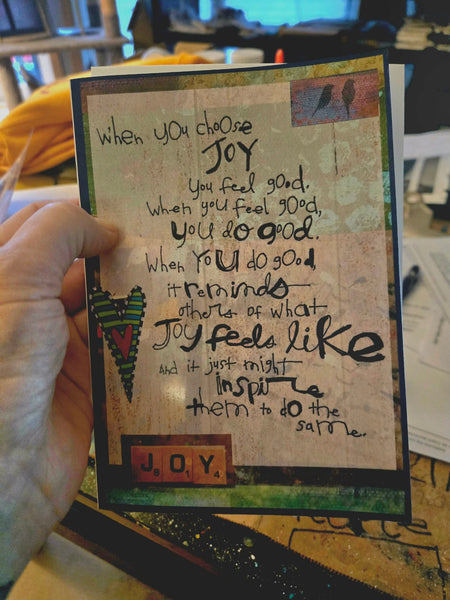 When you choose
JOY
you feel good.
When you feel good,
you do good.
When you do good,
it reminds
others of what
Joy feels like
And it just might
inspire
them to do the
same.
J8 O1 Y4